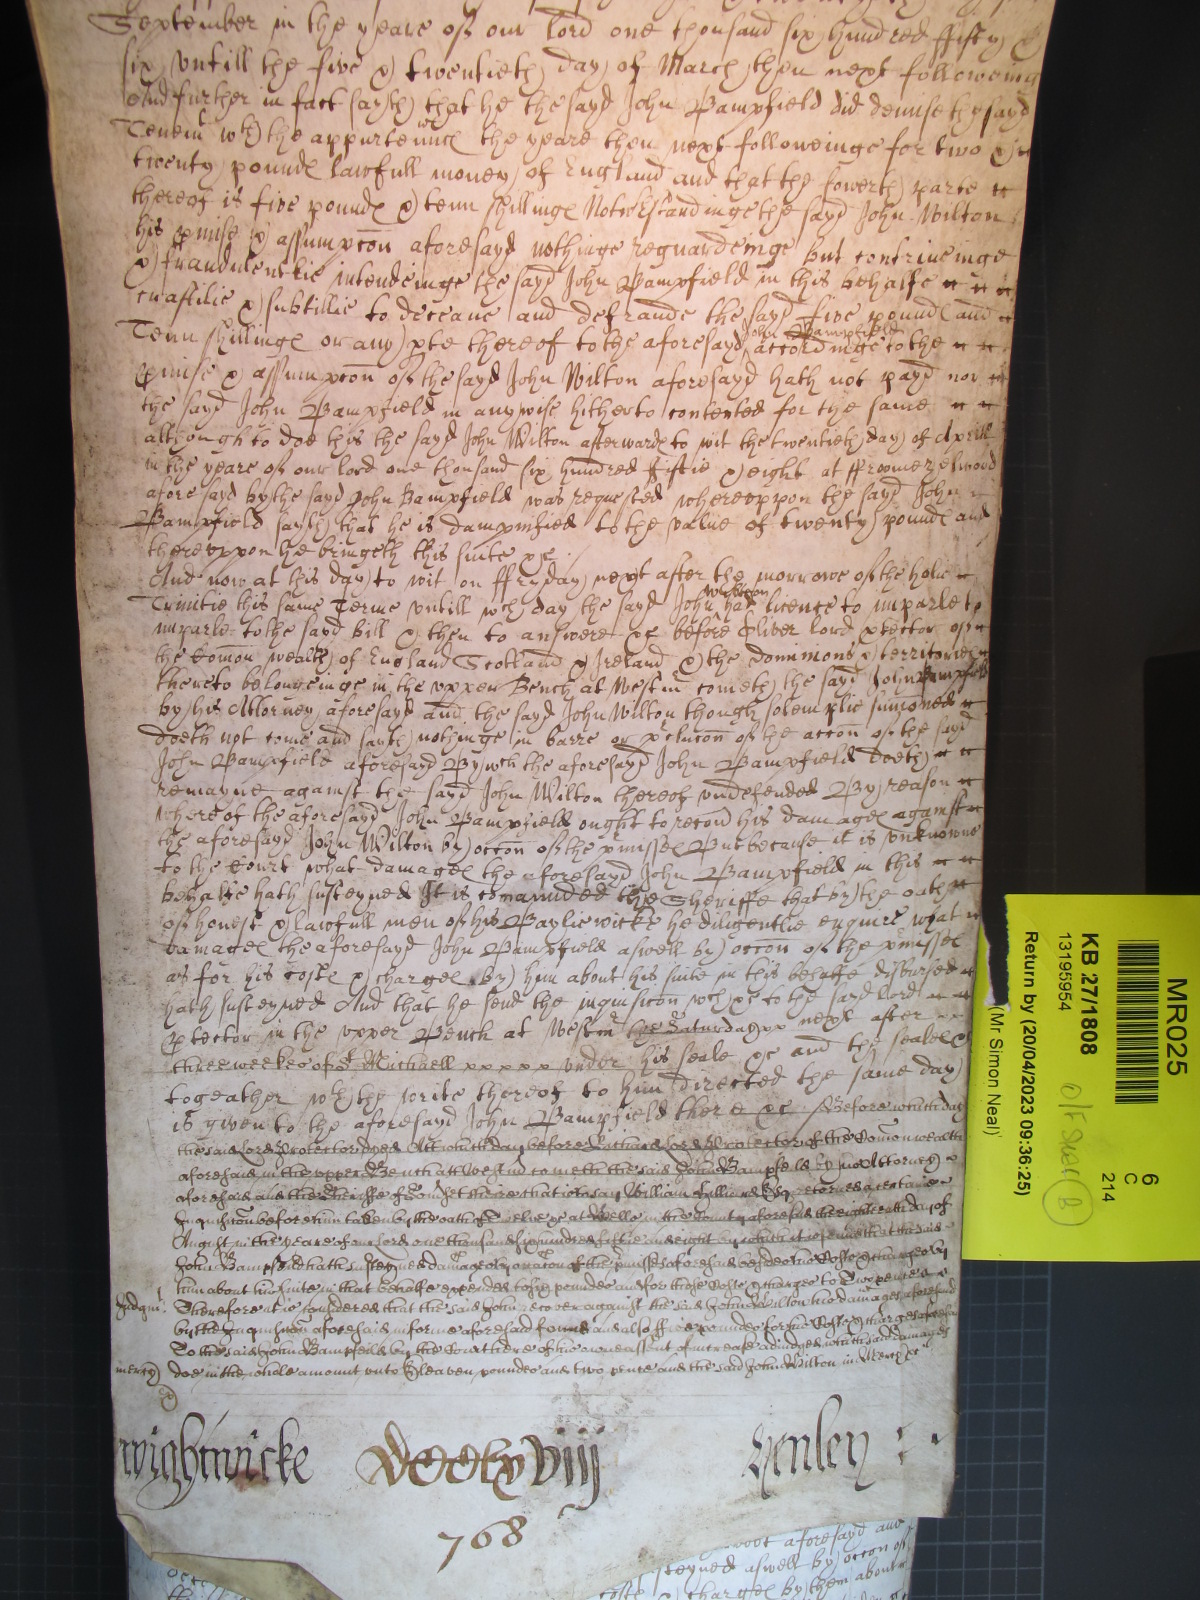 September in the yeare of our Lord one thousand six hundred ffifty &
six untill the five & twentieth day of March then next followeing
And further in fact sayth that he the sayd John Bampfield did demise the sayd
Tenemt wth the appurtenncs the yeare then next followeinge for two &
twenty pounds lawfull money of England and that the fowerth parte
thereof is five pounds & tenn shillings Notwthstandinge the sayd John Wilton
his pmise & assumpcon aforesayd nothinge reguardeinge but contriveinge
& fraudulentlie intendeinge the sayd John Bampfield in this behalfe
craftilie & subtillie to deceave and defraude the sayd five pounds and
Tenn shillings or any pte thereof to the aforesayd John Bampfield accordinge to the
pmise & assumpcon of the sayd John Wilton aforesayd hath not payd nor
the sayd John Bampfield in anywise hitherto contented for the same
although to doe this the sayd John Wilton afterwards to wit the twentieth day of Aprill
in the yeare of our lord one thousand six hundred ffiftie & eight at ffroomezelwood
aforesayd by the sayd John Bampfield was requested whereuppon the sayd John
Bampfield sayth that he is dampnified to the value of twenty pounds and
thereuppon he bringeth this suite &c
And now at this day to wit on ffryday next after the morrowe of the holie
Trinitie this same Terme untill wch day the sayd John Wilton had licence to imparle to
imparle to the sayd bill & then to answere &c before Oliver lord ptector of
the Comon wealth of England Scotland & Ireland & the dominions & territories
thereto belongeinge in the upper Bench at Westmr cometh the sayd John Bampfield
by his Attorney aforesayd and the sayd John Wilton though solemplie sumoned
doeth not come and sayth nothinge in barre or pclucon of the accon of the sayd
John Bampfield aforesayd By wch the aforesayd John Bampfield doeth
remayne against the sayd John Wilton thereof undefended By reason
whereof the aforesayd John Bampfield ought to recovr his damages against
the aforesayd John Wilton by occon of the pmisses But because it is unknowne
to the Court what damages the aforesayd John Bampfield in this
behalfe hath susteyned It is comannded the Sheriffe that by the oathe
of honest & lawfull men of his Bayliewicke he diligentlie enquire what
damages the aforesayd John Bampfield aswell by occon of the pmisses
as for his costs & charges by him about his suite in this behalfe disbursed
hath susteyned And that he send the inquisicon wch &c to the sayd lord
ptector in the upper Bench at Westmr the Saturday next after
three weekes of St Michaell under his seale &c and the seales &c
togeather wth the write thereof to him directed the same day
is given to the aforesayd John Bampfield there &c Before which day
the said Lord Protector dyed Att which day before Richard Lord Protector of the Comonwealth
aforesaid in the upper Bench att Westmr cometh the said John Bampfeild by his Attorney
aforesaid and the Sheriffe of Somsetshere that is to say William Esqr retorned a certaine
Inquisicon before him taken by the oath of twelve &c at Wells in the County aforesaid the eighteenth day of
August in the yeare of our lord one thousand six hundred fiftie and eight by which it is found that the said
John Bampfeild hath susteyned damages by occacon of the pmisses aforesaid besides his Costs & charges by
him about his suite in that behalfe expended to six pounds and for those Costs & charges to Two pence
Judgmt. Therefore it is considered that the said John recover against the said John Wilton his damages aforesaid
by the Inquisicon aforesaid in forme aforesaid found and also ffive pounds for his Costs & charges aforesaid
To the said John Bampfeild by the Court here of his owne assent of increase adiudged which said damages
mercy doe in the whole amount unto Eleaven pounds and two pence and the said John Wilton in Mercy &c
Wightwicke
viij
Henley
768
MR025
6
C
214
KB 27/1808
13195954
Return by (20/04/2023 09:36:25)
(Mr. Simon Neal)